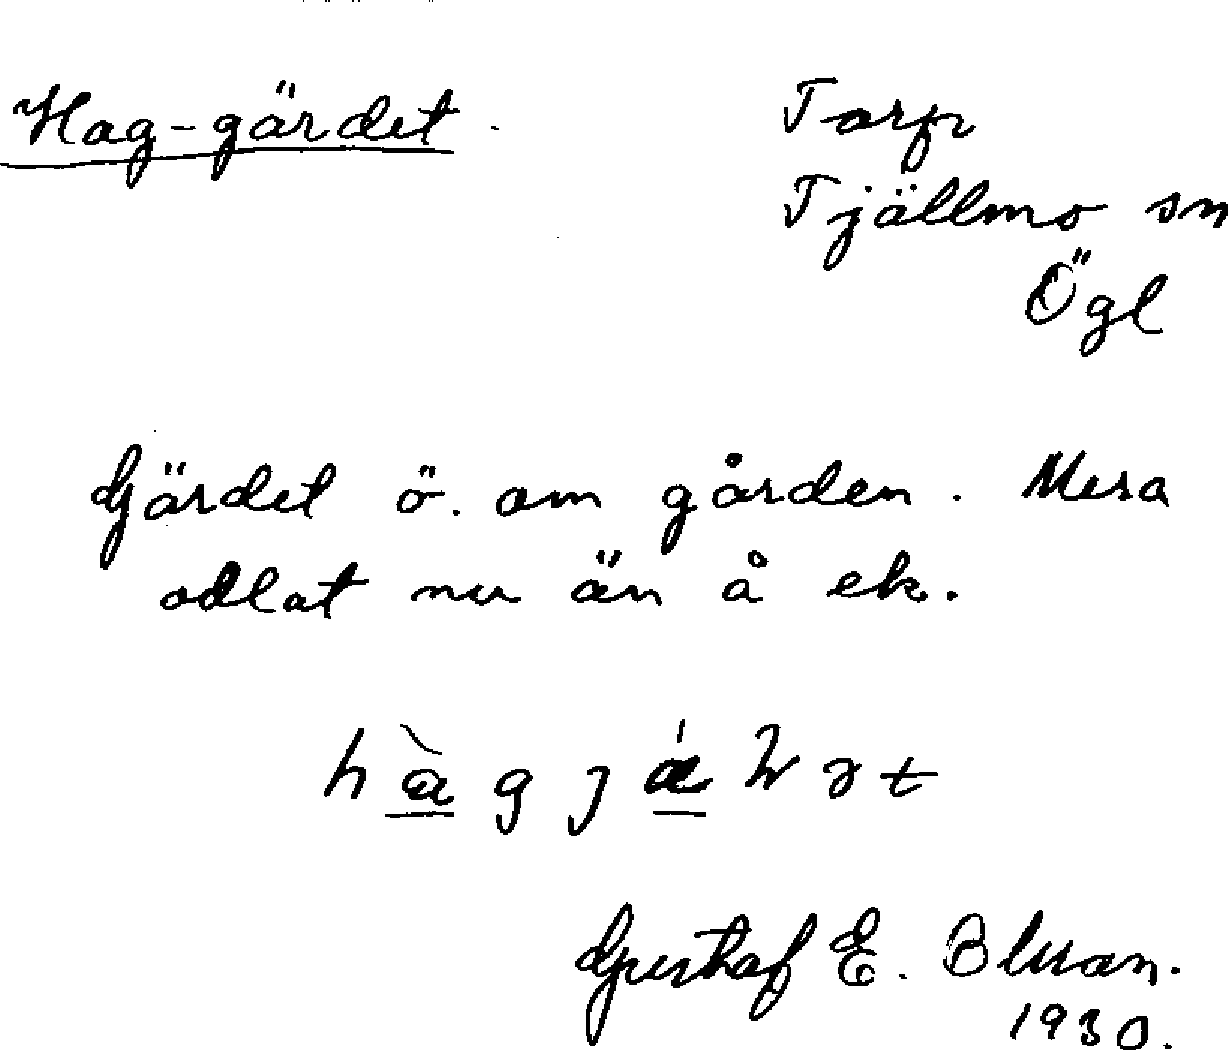 Hag-gärdet.
Torp
Tjällmo sn
Ögl
Gärdet ö. om gården. Mera
odlat nu än å ek.
Gustaf E. Bluan.
1930.